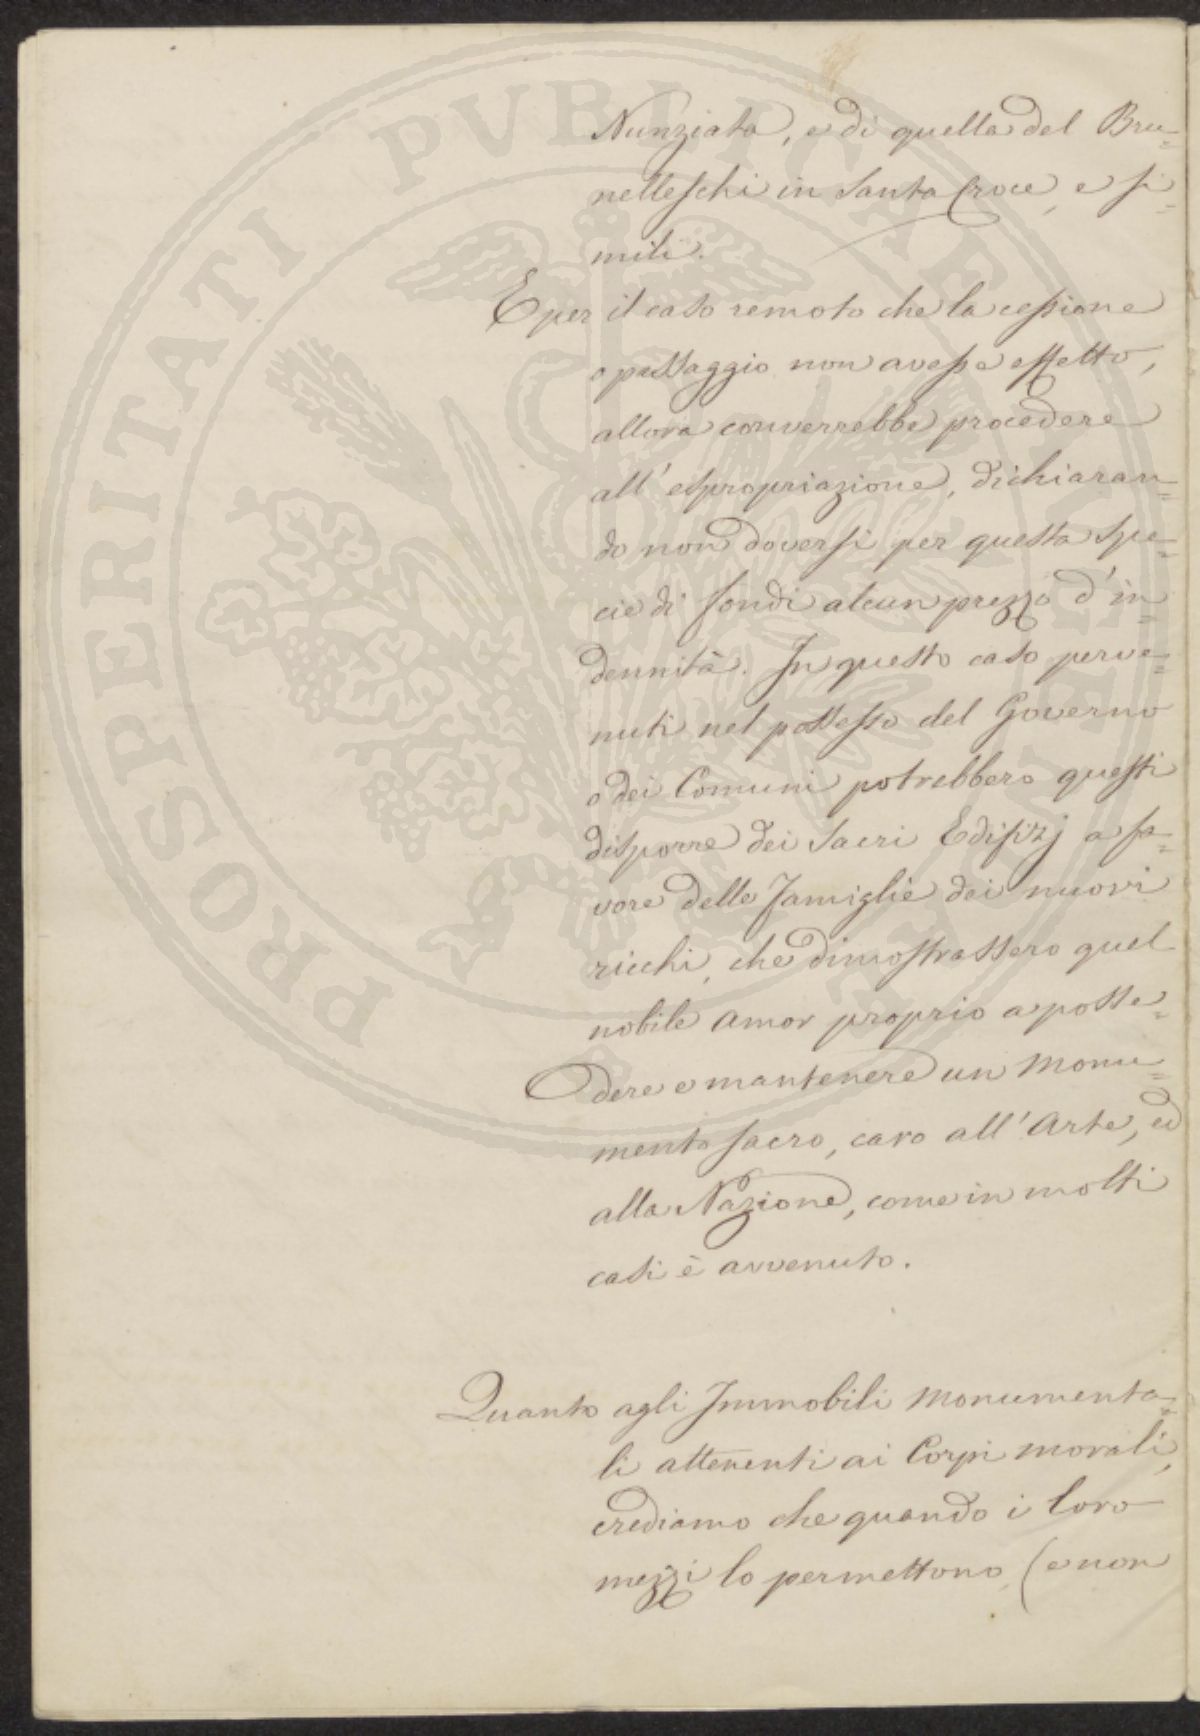 PROSPERITATI PUBLICAE AUGENDAE
Nunziata, e di quella del Bru=
nelleschi in Santa Croce, e si=
mili.
E per il caso remoto che la cessione
o passaggio non avesse effetto,
allora converrebbe procedere
all'espropriazione, dichiaran=
do non doversi per questa spe=
cie di fondi alcun prezzo d'in=
dennità. In questo caso perve=
nuti nel possesso del Governo
o dei Comuni potrebbero questi
disporre dei Sacri Edifizj a fa=
vore delle Famiglie dei nuovi
ricchi, che dimostrassero quel
nobile amor proprio a posse=
dere e mantenere un Monu=
mento sacro, caro all'Arte, ed
alla Nazione, come in molti
casi è avvenuto.
Quanto agli Immobili Monumenta=
li attenenti ai Corpi morali,
crediamo che quando i loro
mezzi lo permettono (e non